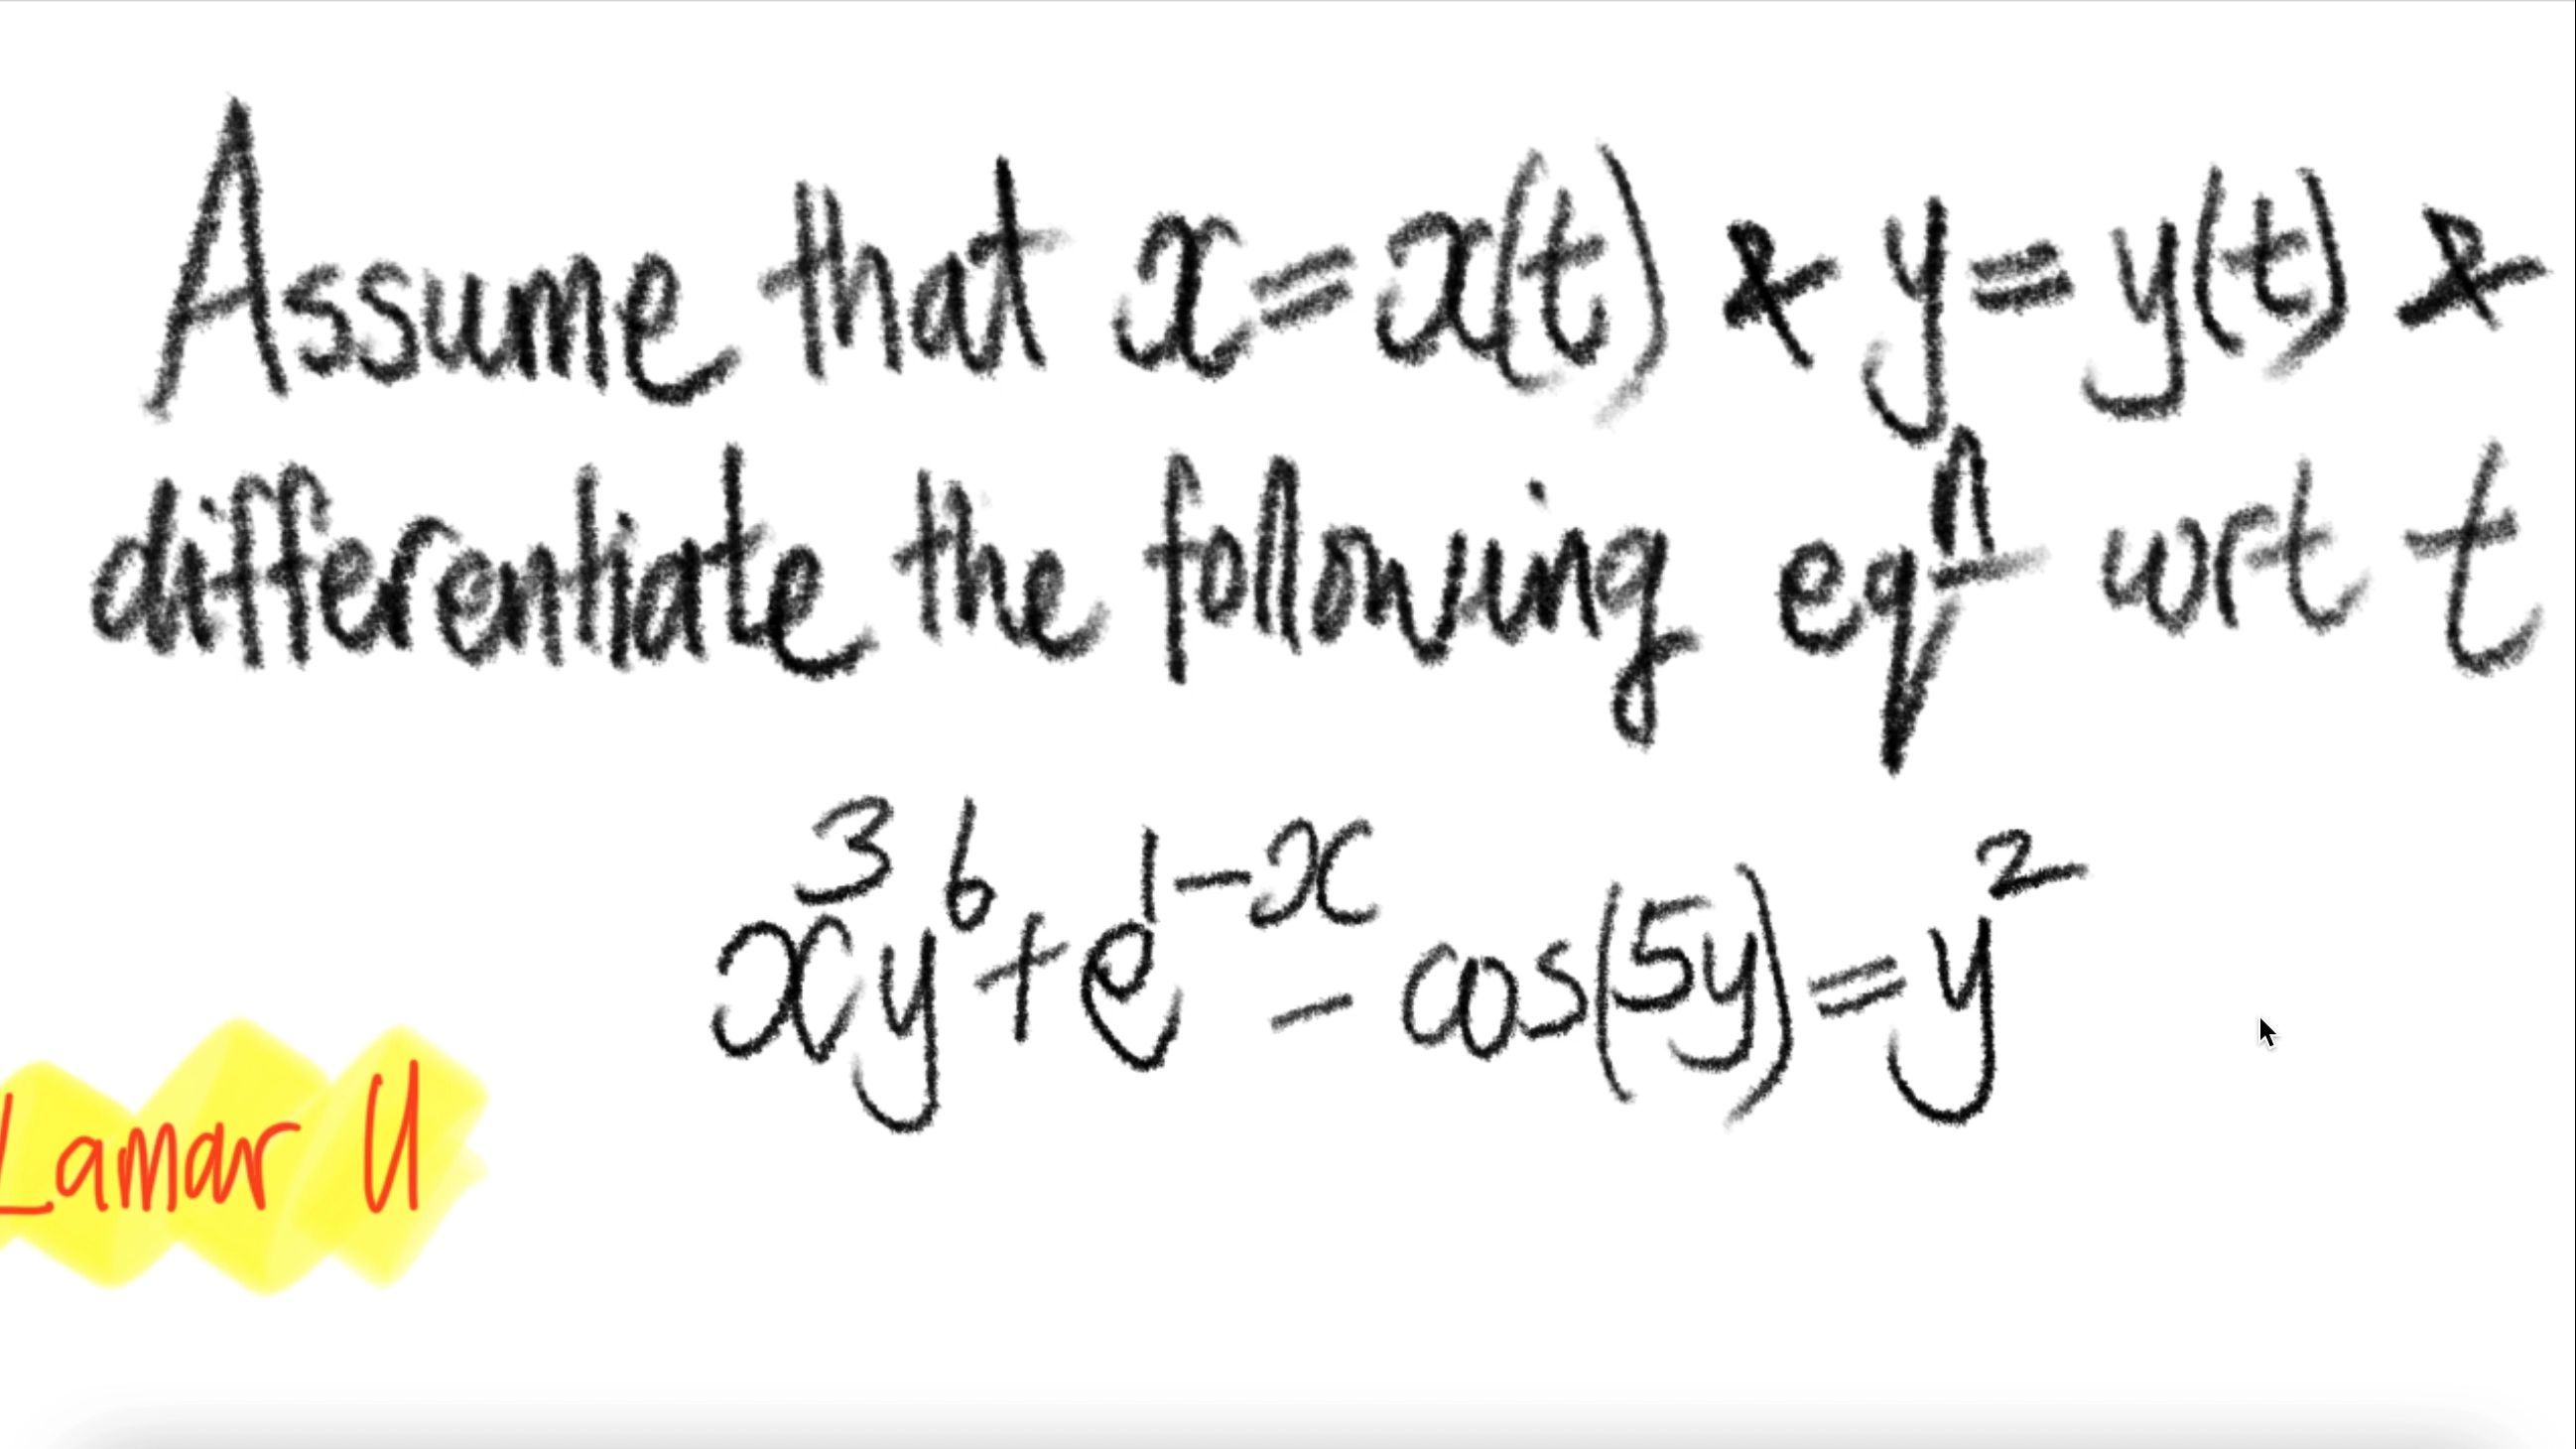 Assume that x=x(t) & y=y(t) &
differentiate the following eqⁿ wrt t
x³y⁶+e¹⁻ˣ - cos(5y)=y²
Lamar U